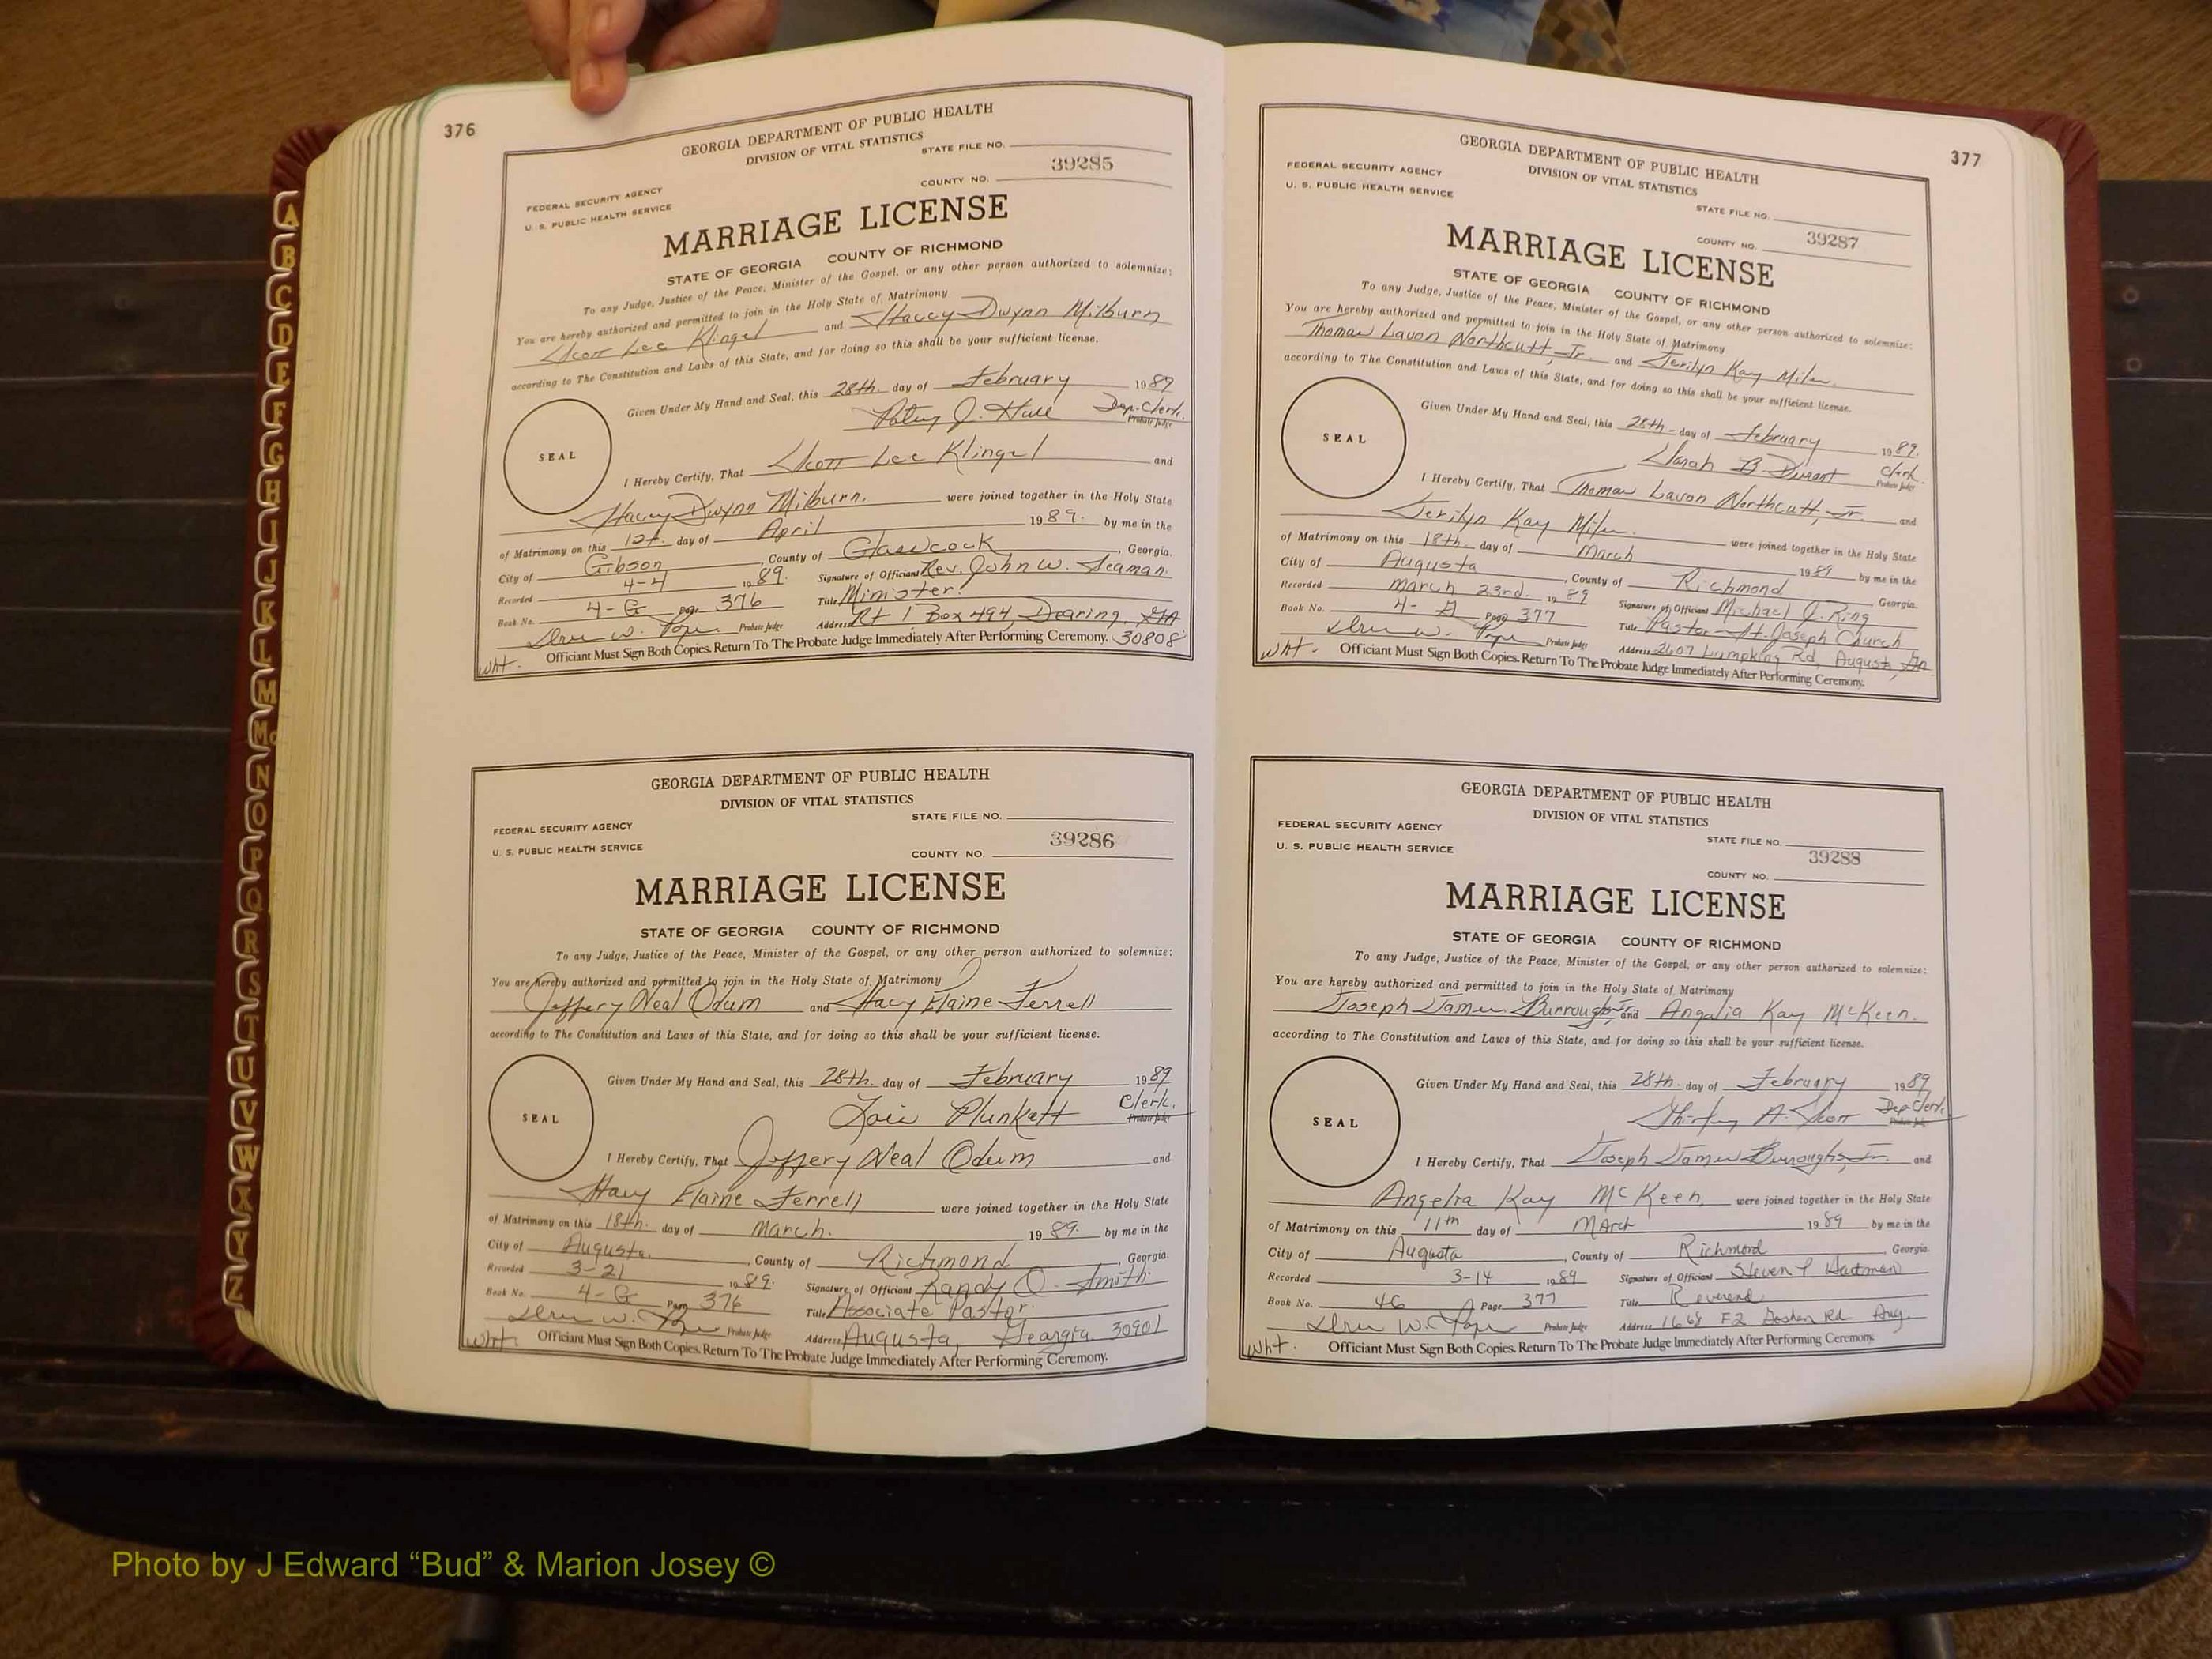 376
GEORGIA DEPARTMENT OF PUBLIC HEALTH
DIVISION OF VITAL STATISTICS
STATE FILE NO.
39285
FEDERAL SECURITY AGENCY
COUNTY NO.
U. S. PUBLIC HEALTH SERVICE
MARRIAGE LICENSE
STATE OF GEORGIA COUNTY OF RICHMOND
To any Judge, Justice of the Peace, Minister of the Gospel, or any other person authorized to solemnize:
You are hereby authorized and permitted to join in the Holy State of Matrimony
Scott Lee Klingel and Stacey Dwynn Milburn
according to The Constitution and Laws of this State, and for doing so this shall be your sufficient license.
Given Under My Hand and Seal, this 28th. day of February 1989
Dep. Clerk.
Probate Judge
SEAL
I Hereby Certify, That Scott Lee Klingel and
Stacey Dwynn Milburn. were joined together in the Holy State
of Matrimony on this 1st. day of April 1989. by me in the
City of Gibson, County of Glascock, Georgia.
Recorded 4-4 1989. Signature of Officiant Rev. John W. Seaman.
Book No. 4-G Page 376 Title Minister.
Probate Judge Address Rt 1 Box 494, Dearing, GA
30808
Wht. Officiant Must Sign Both Copies. Return To The Probate Judge Immediately After Performing Ceremony.
GEORGIA DEPARTMENT OF PUBLIC HEALTH
DIVISION OF VITAL STATISTICS
STATE FILE NO.
FEDERAL SECURITY AGENCY
39286
U. S. PUBLIC HEALTH SERVICE
COUNTY NO.
MARRIAGE LICENSE
STATE OF GEORGIA COUNTY OF RICHMOND
To any Judge, Justice of the Peace, Minister of the Gospel, or any other person authorized to solemnize:
You are hereby authorized and permitted to join in the Holy State of Matrimony
Jeffery Neal Odum and Stacy Elaine Ferrell
according to The Constitution and Laws of this State, and for doing so this shall be your sufficient license.
Given Under My Hand and Seal, this 28th. day of February 1989
Lois Plunkett Clerk.
Probate Judge
SEAL
I Hereby Certify, That Jeffery Neal Odum and
Stacy Elaine Ferrell were joined together in the Holy State
of Matrimony on this 18th. day of March. 1989. by me in the
City of Augusta., County of Richmond, Georgia.
Recorded 3-21 1989. Signature of Officiant Randy O. Smith.
Book No. 4-G Page 376 Title Associate Pastor.
Probate Judge Address Augusta, Georgia 30901
Wht. Officiant Must Sign Both Copies. Return To The Probate Judge Immediately After Performing Ceremony.
377
GEORGIA DEPARTMENT OF PUBLIC HEALTH
DIVISION OF VITAL STATISTICS
FEDERAL SECURITY AGENCY
U. S. PUBLIC HEALTH SERVICE
STATE FILE NO.
39287
COUNTY NO.
MARRIAGE LICENSE
STATE OF GEORGIA COUNTY OF RICHMOND
To any Judge, Justice of the Peace, Minister of the Gospel, or any other person authorized to solemnize:
You are hereby authorized and permitted to join in the Holy State of Matrimony
Thomas Lavon Northcutt, Jr. and Terilyn Kay
according to The Constitution and Laws of this State, and for doing so this shall be your sufficient license.
Given Under My Hand and Seal, this 28th day of February 1989.
Sarah B. Clerk.
Probate Judge
SEAL
I Hereby Certify, That Thomas Lavon Northcutt, Jr. and
Terilyn Kay were joined together in the Holy State
of Matrimony on this 18th. day of March 1989 by me in the
City of Augusta, County of Richmond Georgia.
Recorded March 23rd. 1989 Signature of Officiant Michael J. Ring
Book No. 4- G Page 377 Title Pastor - St. Joseph Church
Probate Judge Address 2607 Lumpking Rd, Augusta, Ga
Wht. Officiant Must Sign Both Copies. Return To The Probate Judge Immediately After Performing Ceremony.
GEORGIA DEPARTMENT OF PUBLIC HEALTH
DIVISION OF VITAL STATISTICS
FEDERAL SECURITY AGENCY
STATE FILE NO.
U. S. PUBLIC HEALTH SERVICE
39288
COUNTY NO.
MARRIAGE LICENSE
STATE OF GEORGIA COUNTY OF RICHMOND
To any Judge, Justice of the Peace, Minister of the Gospel, or any other person authorized to solemnize:
You are hereby authorized and permitted to join in the Holy State of Matrimony
Joseph James Burroughs, Jr. and Angelia Kay McKeen.
according to The Constitution and Laws of this State, and for doing so this shall be your sufficient license.
Given Under My Hand and Seal, this 28th. day of February 1989
Shirley A. Scott Dep. Clerk.
Probate Judge
SEAL
I Hereby Certify, That Joseph James Burroughs, Jr. and
Angelia Kay McKeen, were joined together in the Holy State
of Matrimony on this 11th day of MArch 1989 by me in the
City of Augusta, County of Richmond, Georgia.
Recorded 3-14 1989 Signature of Officiant Steven P. Hartman
Book No. 4G Page 377 Title Reverend
Probate Judge Address 1668 F2 Goshen Rd Aug.
Wht. Officiant Must Sign Both Copies. Return To The Probate Judge Immediately After Performing Ceremony.
A
B
C
D
E
F
G
H
I
J
K
L
M
Mc
N
O
P
Q
R
S
T
U
V
W
X
Y
Z
Photo by J Edward “Bud” & Marion Josey ©